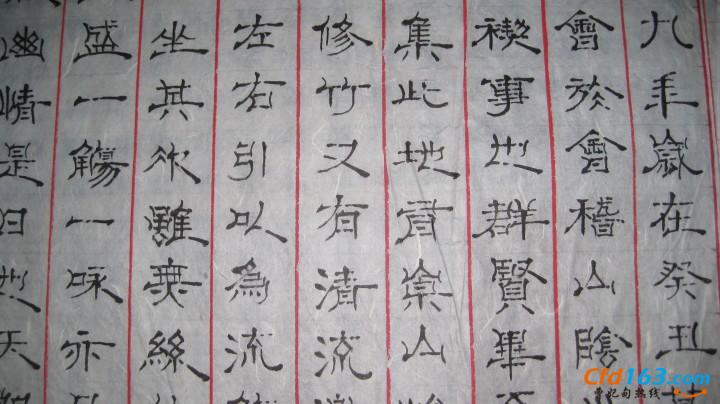 九年歲在癸丑
會於會稽山陰
禊事也群賢畢
集此地有崇山
修竹又有清流
左右引以為流
坐其次雖無絲
盛一觴一咏亦
幽情是日也天
Cfd163.com
曹妃甸热线